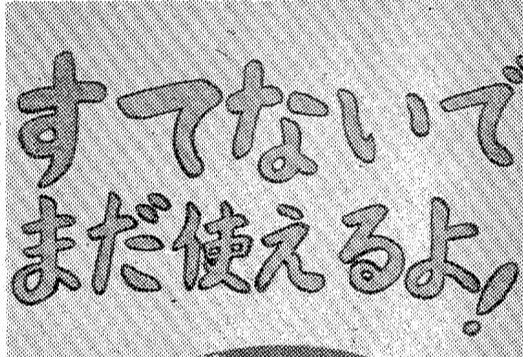 すてないで
まだ使えるよ!